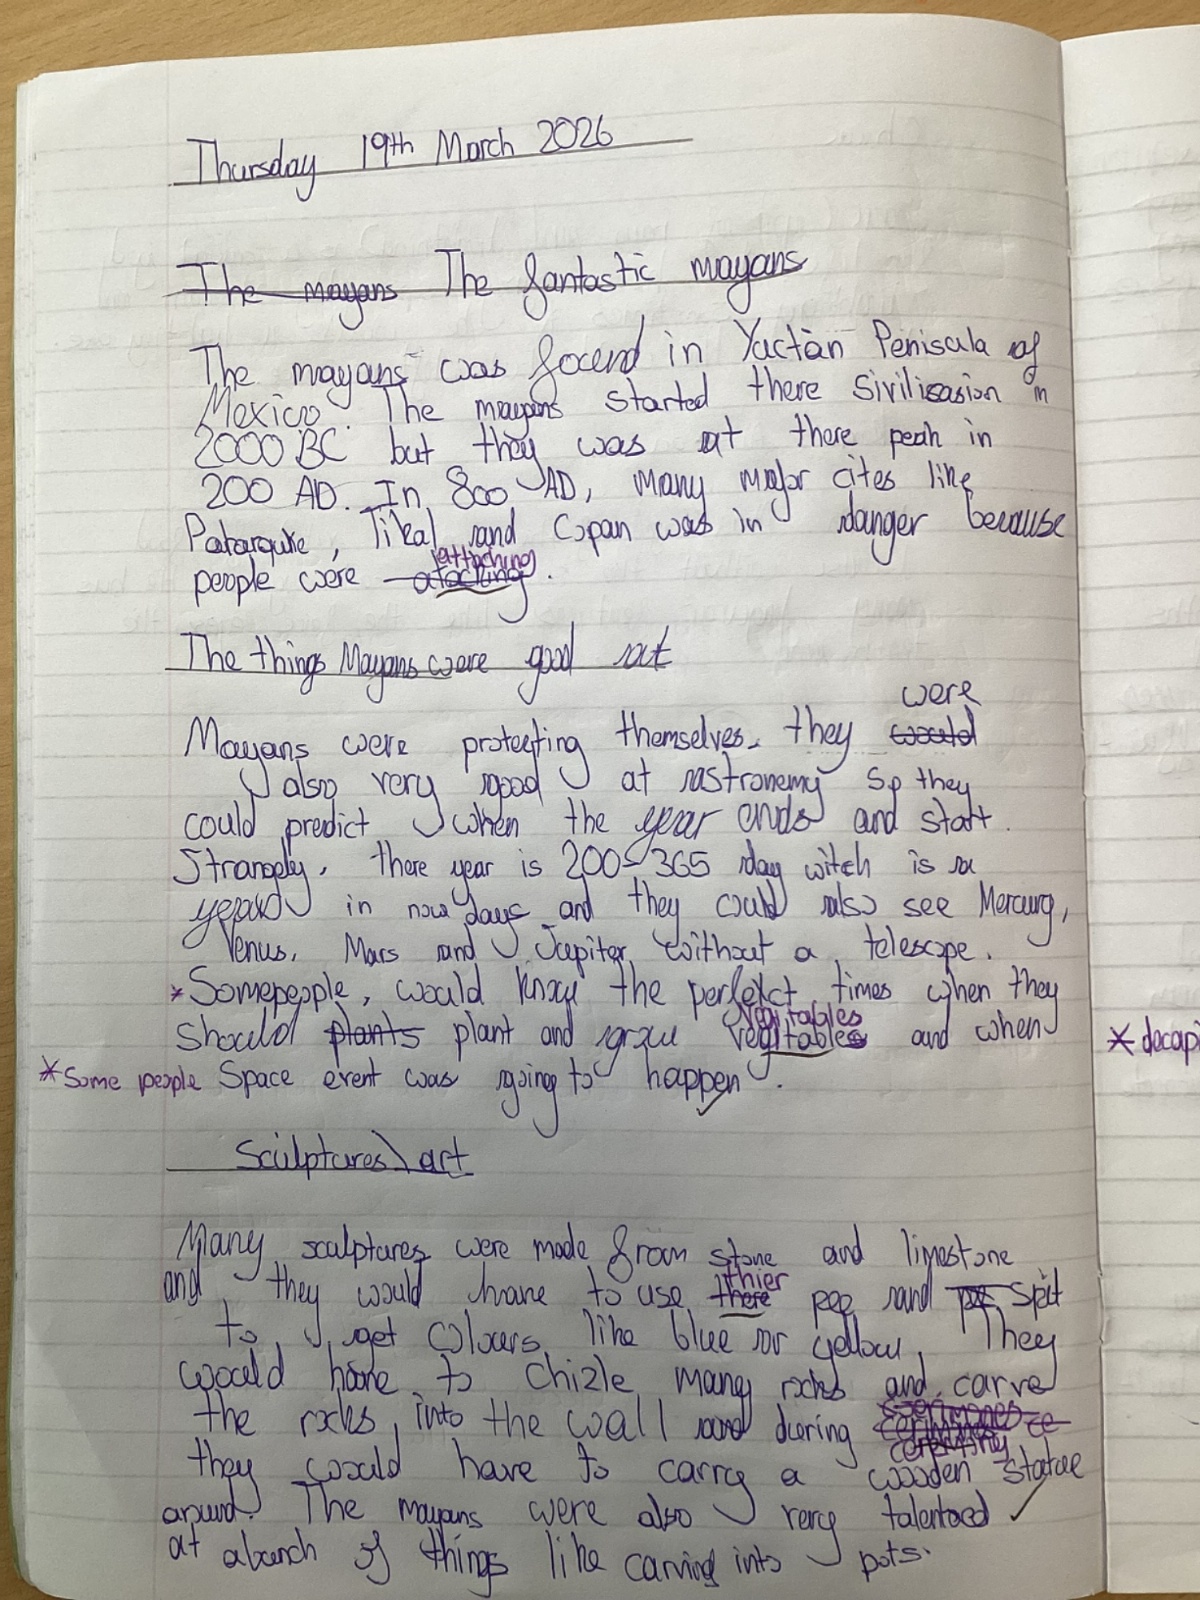 Thursday 19th March 2026
The mayans The fantastic mayans
The mayans was focend in Yactàn Penisula of
Mexico. The mayans started there sivilisasion in
2000 BC but they was at there peak in
200 AD. In 800 AD, many major cites like
, Tikal and Copan was in danger because
attaching
people were atacking.
The things Mayans were good at
were
Mayans were protecting themselves. they would
also very good at astronemy so they
could predict when the year ends and start.
Strangely, there year is 200-365 day witch is a
years in now days and they could also see Mercury,
Venus, Mars and Jupiter without a telescope.
*Somepeople, would know the perfekct times when they
vegitables
should plants plant and grow vegitables and when
*Some people Space event was going to happen.
* decapi
Sculptures\art
Many sculptures were made from stone and limestone
thier
and they would have to use there pee and spit
to get colours like blue or yellow. They
would have to chizle many rocks and carve
the rocks into the wall and during
ceremony
they would have to carry a wooden statue
around. The mayans were also very talentaed
at abunch of things like carving into pots.